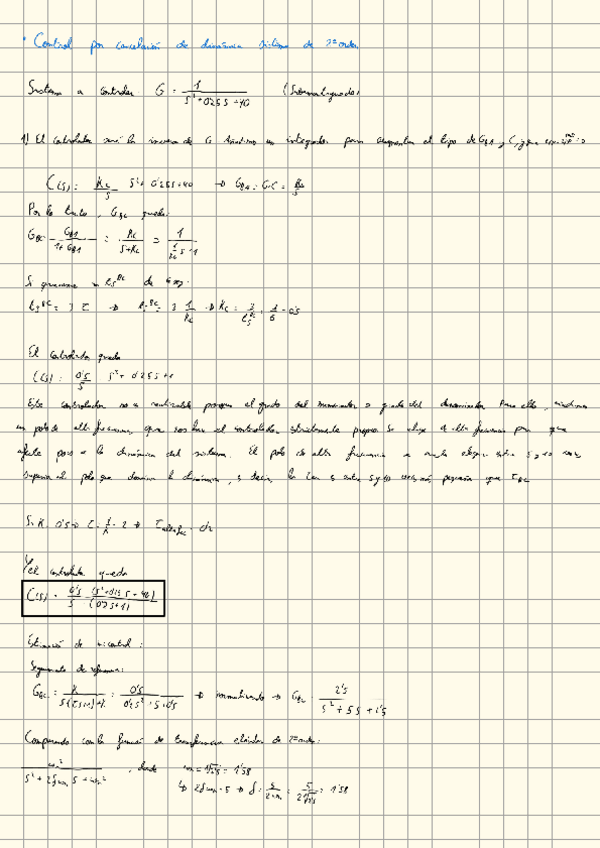 · Control por cancelación de dinámica sistema de 2º orden
Sistema a controlar G = 1 / (s² + 0'25 s + 40)
1) El controlador será la inversa de G. Añadimos un integrador para aumentar el tipo de G_BA
C(s) = Kc/s · s² + 0'25s + 40 → G_BA = G·C = Kc/s
Por lo tanto, G_BC queda:
G_BC = G_BA / (1 + G_BA) = Kc / (s + Kc) = 1 / (1/Kc s + 1)
Si queremos un
= 3 τ → = 3 1/Kc → Kc = = 0'5
El controlador queda
C(s) = 0'5/s
Este controlador no es realizable porque el grado del numerador > grado del denominador. Para ello, añadimos
un polo de alta frecuencia, que vuelva el controlador estrictamente propio. Se elige a alta frecuencia para que
afecte poco a la dinámica del sistema. El polo de alta frecuencia se suele elegir entre 5 y 10 veces
superior al polo que domina la dinámica, es decir, entre 5 y 10 veces más pequeña que τ_BC
Si K = 0'5 → τ = 1/K = 2 →
Y el controlador queda
C(s) = 0'5/s
de control:
Seguimiento de referencia:
G_BC = K / (s(τs+1)+K) = 0'5 / (0'2s² + s + 0'5) → normalizando → G_BC = 2'5 / (s² + 5s + 2'5)
Comparando con la función de transferencia estándar de 2º orden:
ωn² / (s² + 2δωn s + ωn²) , donde ωn = √2'5 = 1'58
↳ 2δωn = 5 → δ = 5/2ωn = 5/2√2'5 = 1'58